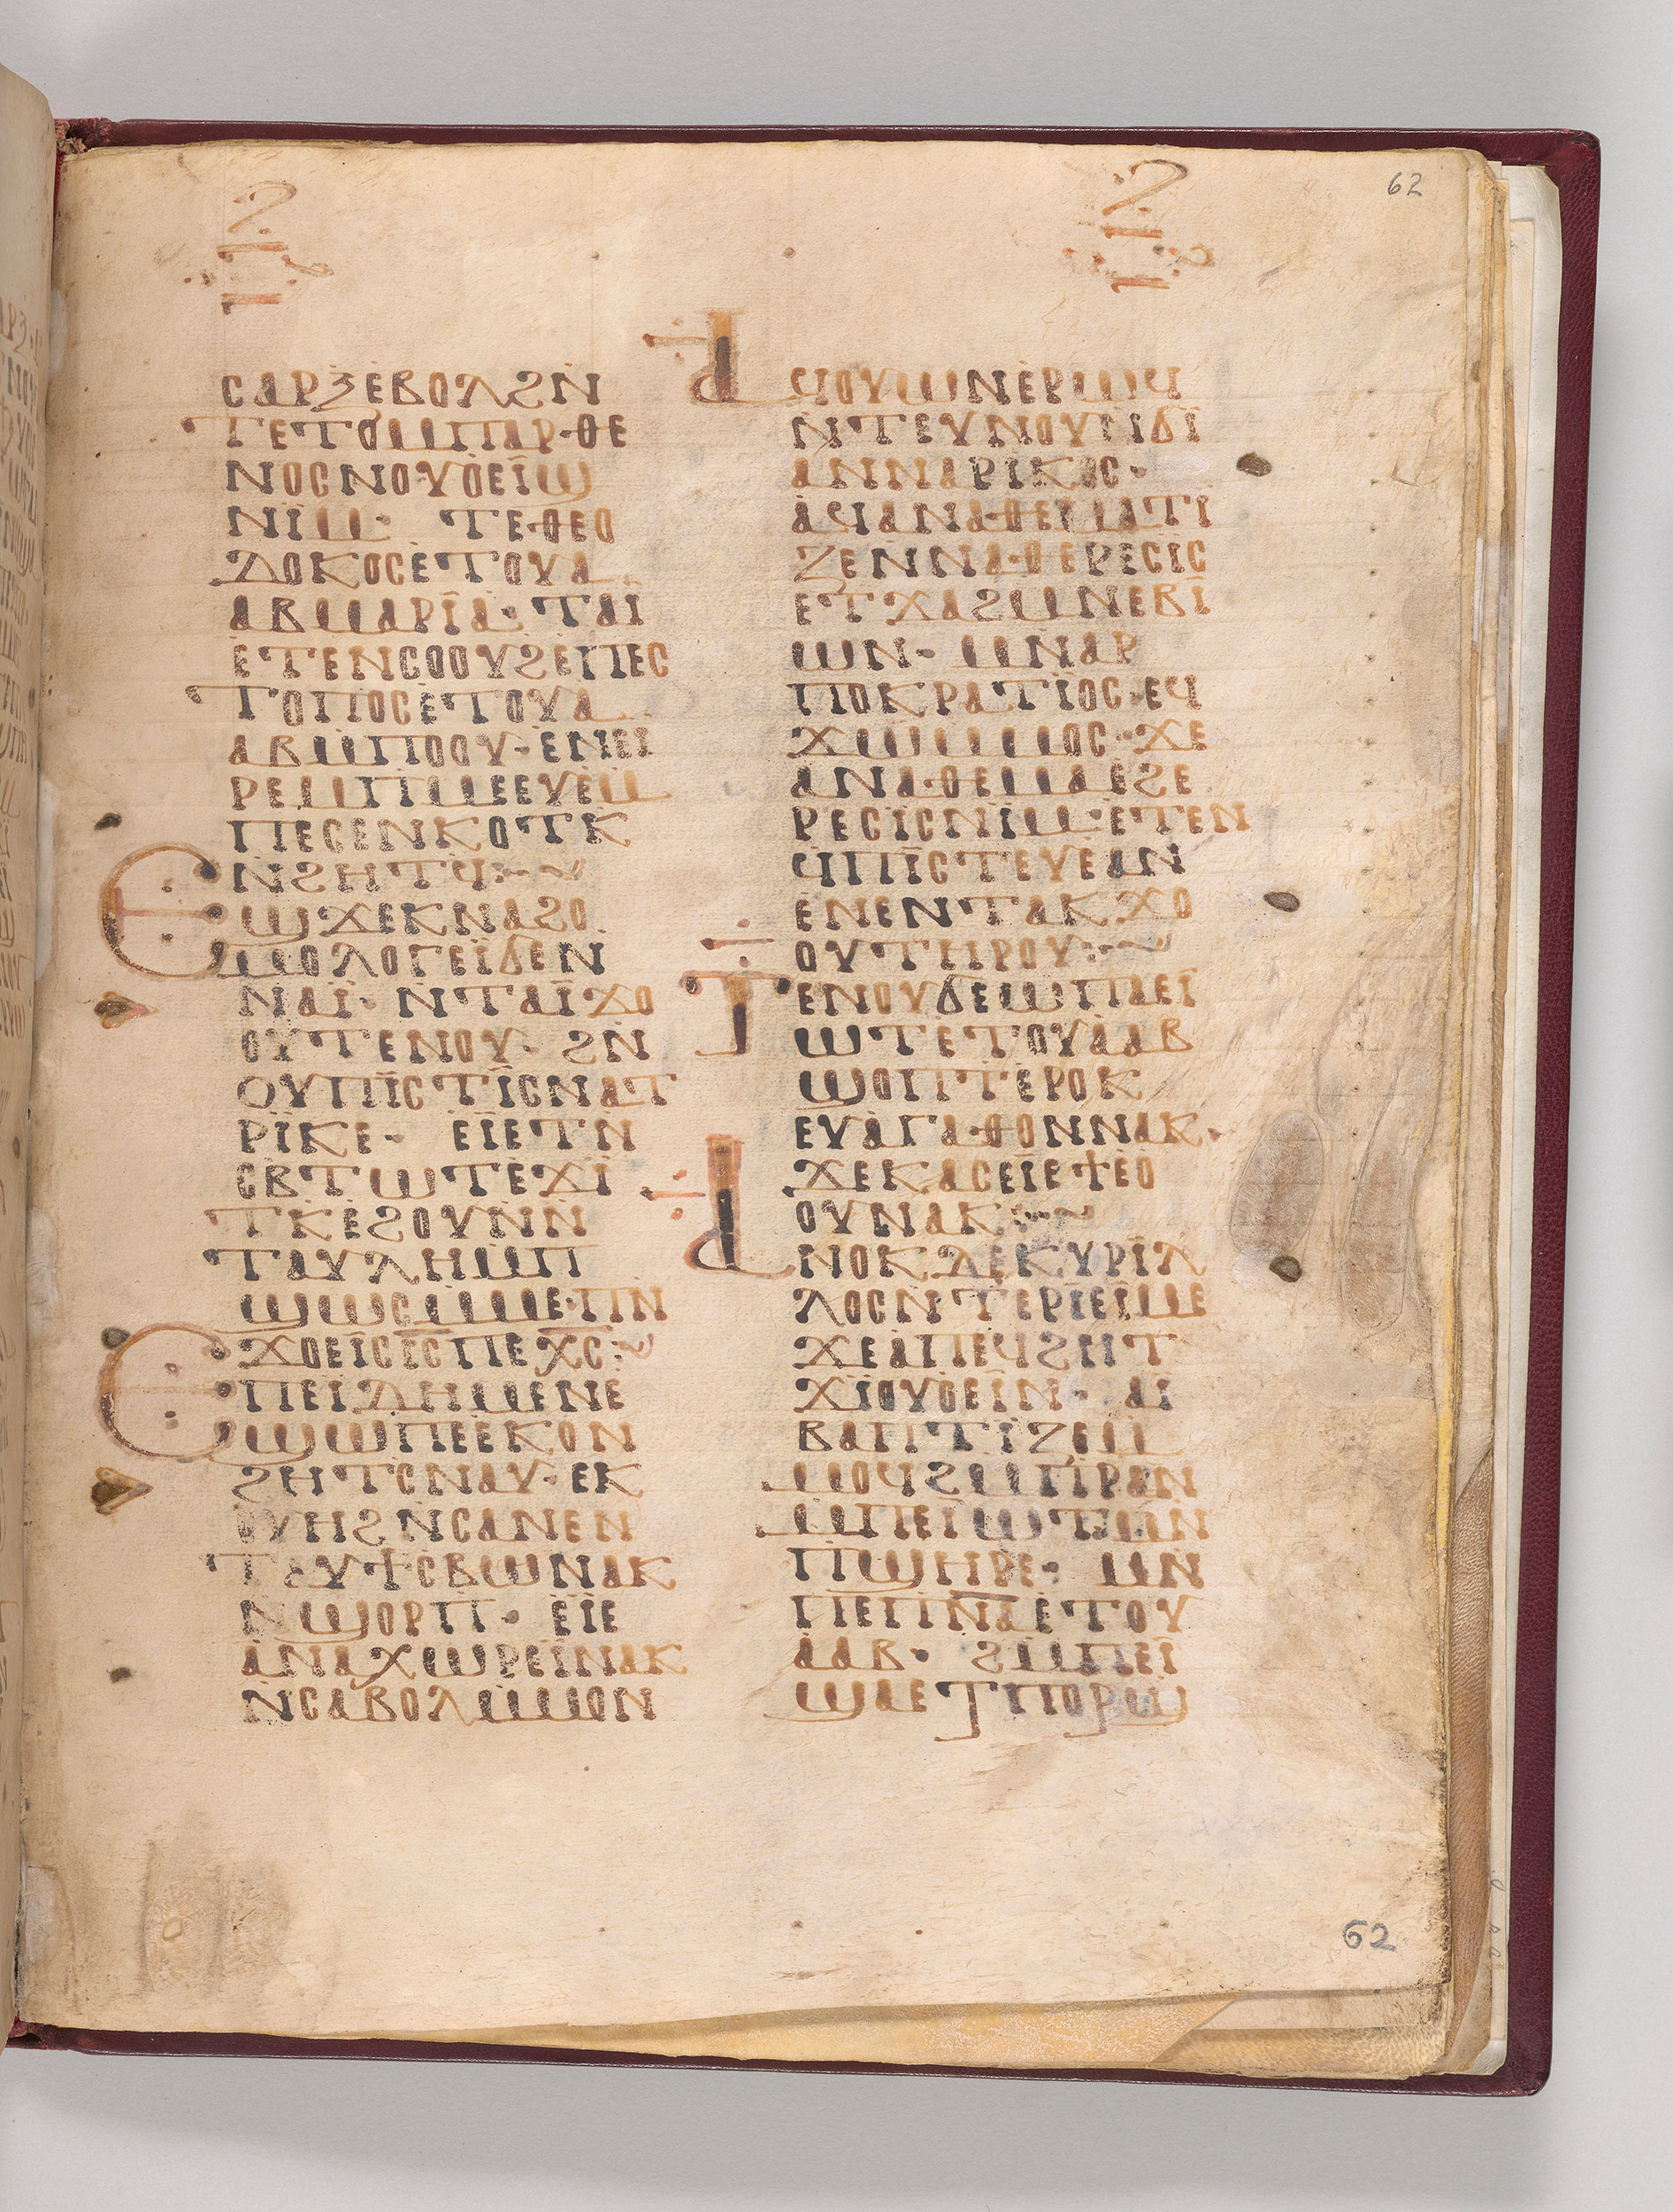 62
ⲥⲁⲣⲝⲉⲃⲟⲗϩⲛ̀
ⲧⲉⲧⲟⲙ̀ⲡⲁⲣ·ⲑⲉ
ⲛⲟⲥⲛⲟⲩⲟ̀ⲉⲓ̈ϣ
ⲛⲓⲙ· ⲧⲉ·ⲑⲉⲟ
ⲇⲟⲕⲟⲥⲉ̀ⲧⲟⲩⲁ
ⲁⲃⲙⲁⲣⲓ̈ⲁ· ⲧⲁⲓ̈
ⲉ̀ⲧⲉⲛⲥⲟⲟⲩϩⲉ̀ⲡⲉⲥ
ⲧⲟⲡⲟⲥⲉ̀ⲧⲟⲩⲁ
ⲁⲃⲙ̀ⲡⲟⲟⲩ·ⲉⲛⲉⲓ
ⲣⲉⲙ̀ⲡⲙⲉⲉⲩⲉ̀ⲙ̀
ⲡⲉⲥⲉⲛⲕⲟⲧⲕ
ⲛ̀ϩⲏⲧϥ
ⲉϣϫⲉⲕⲛⲁϩⲟ
ⲙⲟⲗⲟⲅⲉⲓ̈ϭⲉⲛ
ⲛⲁⲓ̈· ⲛ̀ⲧⲁⲓ̈ϫⲟ
ⲟⲩⲧⲉⲛⲟⲩ· ϩⲛ̀
ⲟⲩⲡⲓ̈ⲥⲧⲓ̈ⲥⲛⲁⲧ
ⲣⲓ̈ⲕⲉ· ⲉⲓ̈ⲉⲧⲛ
ⲥⲃⲧⲱⲧⲉϫⲓ̈
ⲧⲕⲉ̀ϩⲟⲩⲛⲛ̀
ⲧⲁⲩⲗⲏⲙ̀ⲡ
ϣⲱⲥⲙ̀ⲙⲉ·ⲡⲛ̀
ϫⲟⲉⲓ̈ⲥⲓ̅ⲥ̅ⲡⲉⲭ̅ⲥ̅
ⲉⲡⲉⲓⲇⲏⲙⲉⲛⲉ
ϣⲱⲡⲉⲉ̀ⲕⲟⲛ
ϩⲏⲧⲥⲛⲁⲩ·ⲉⲕ
ⲟⲩⲏϩⲛ̀ⲥⲁⲛⲉⲛ
ⲧⲁⲩϯⲥⲃⲱⲛⲁⲕ
ⲛϣⲟⲣⲡ· ⲉⲓ̈ⲉ
ⲁ̀ⲛⲁⲭⲱⲣⲉⲓ̈ⲛⲁⲕ
ⲛ̀ⲥⲁⲃⲟⲗⲙ̀ⲙⲟⲛ
ⲁϥⲟⲩⲱⲛⲉⲣⲱϥ
ⲛ̀ⲧⲉⲩⲛⲟⲩⲛ̀ϭⲓ̈
ⲁⲛⲛⲁⲣⲓⲕⲟⲥ·
ⲁϥⲁⲛⲁ·ⲑⲉⲙⲁⲧⲓ̈
ⲍⲉⲛⲛⲁ·ϩⲉⲣⲉⲥⲓⲥ
ⲉⲧϫⲁϩⲙⲛⲉⲃⲓ̈
ⲱⲛ· ⲙⲛⲁⲣ
ⲡⲟⲕⲣⲁⲧⲓ̈ⲟⲥ·ⲉϥ
ϫⲱⲙ̀ⲙⲟⲥ·ϫⲉ
ⲁⲛⲁ·ⲑⲉⲙⲁⲉ̀ϩⲉ
ⲣⲉⲥⲓⲥⲛⲓⲙ·ⲉ̀ⲧⲉⲛ
ϥⲡⲓ̈ⲥⲧⲉⲩⲉⲁⲛ
ⲉ̀ⲛⲉⲛⲧⲁⲕϫⲟ
ⲟⲩⲧⲏⲣⲟⲩ
ⲧⲉⲛⲟⲩϭⲉⲱ̀ⲡⲁⲉⲓ̈
ⲱⲧⲉⲧⲟⲩⲁ̀ⲁⲃ
ϣⲟⲡⲧⲉⲣⲟⲕ
ⲉⲩⲁⲅⲁ·ⲑⲟⲛⲛⲁⲕ·
ϫⲉⲕⲁⲥⲉⲓ̈ⲉϯⲉ̀ⲟ
ⲟⲩⲛⲁⲕ
ⲁⲛⲟⲕⲇⲉⲕⲩⲣⲓ̈ⲗ
ⲗⲟⲥⲛ̀ⲧⲉⲣⲓ̈ⲉⲓ̈ⲙⲉ
ϫⲉⲁ̀ⲡⲉϥϩⲏⲧ
ϫⲓⲟⲩⲟ̀ⲉⲓ̈ⲛ· ⲁⲓ̈
ⲃⲁⲡⲧⲓⲍⲉⲙ̀
ⲙⲟϥϩⲙ̀ⲡⲣⲁⲛ
ⲙ̀ⲡⲉⲓ̈ⲱⲧⲙⲛ̀
ⲡϣⲏⲣⲉ· ⲙⲛ̀
ⲡⲉⲡ̅ⲛ̅ⲁ̅ⲉ̀ⲧⲟⲩ
ⲁ̀ⲁⲃ· ϩⲙ̀ⲡⲉⲓ̈
ϣⲁⲉⲧⲡⲟⲣϣ̀
62